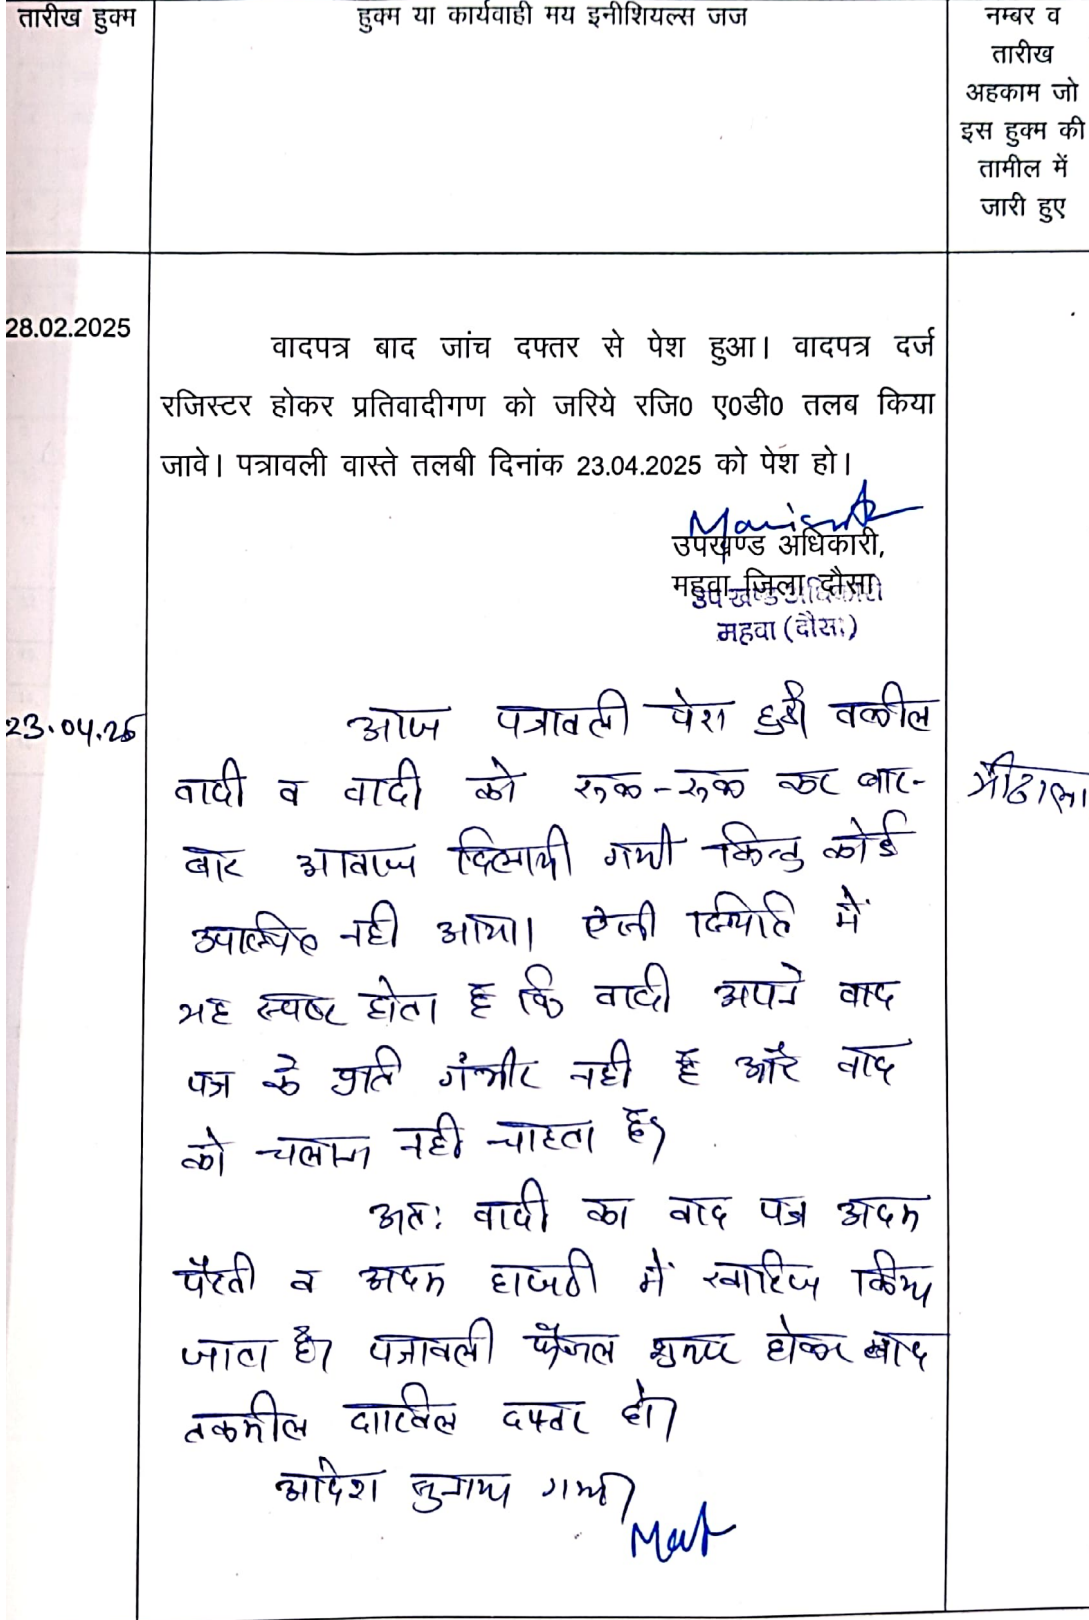 तारीख हुक्म
हुक्म या कार्यवाही मय इनीशियल्स जज
नम्बर व
तारीख
अहकाम जो
इस हुक्म की
तामील में
जारी हुए
28.02.2025
वादपत्र बाद जांच दफ्तर से पेश हुआ। वादपत्र दर्ज
रजिस्टर होकर प्रतिवादीगण को जरिये रजि0 ए0डी0 तलब किया
जावे। पत्रावली वास्ते तलबी दिनांक 23.04.2025 को पेश हो।
उपखण्ड अधिकारी,
महुवा जिला दौसा
उपखण्ड अधिकारी
महवा (दौसा)
23.04.25
आज पत्रावली पेश हुई। वकील
वादी व वादी को रुक-रुक कर बार-
बार आवाज दिलायी गयी किन्तु कोई
उपस्थित नही आया। ऐसी स्थिति में
यह स्पष्ट होता है कि वादी अपने वाद
पत्र के प्रति गंभीर नही है और वाद
को चलाना नही चाहता है।
अतः वादी का वाद पत्र अदम
पैरवी व अदम हाजरी में खारिज किया
जाता है। पत्रावली फैसल शुमार होकर बाद
तकमील दाखिल दफ्तर हो।
आदेश सुनाया गया।